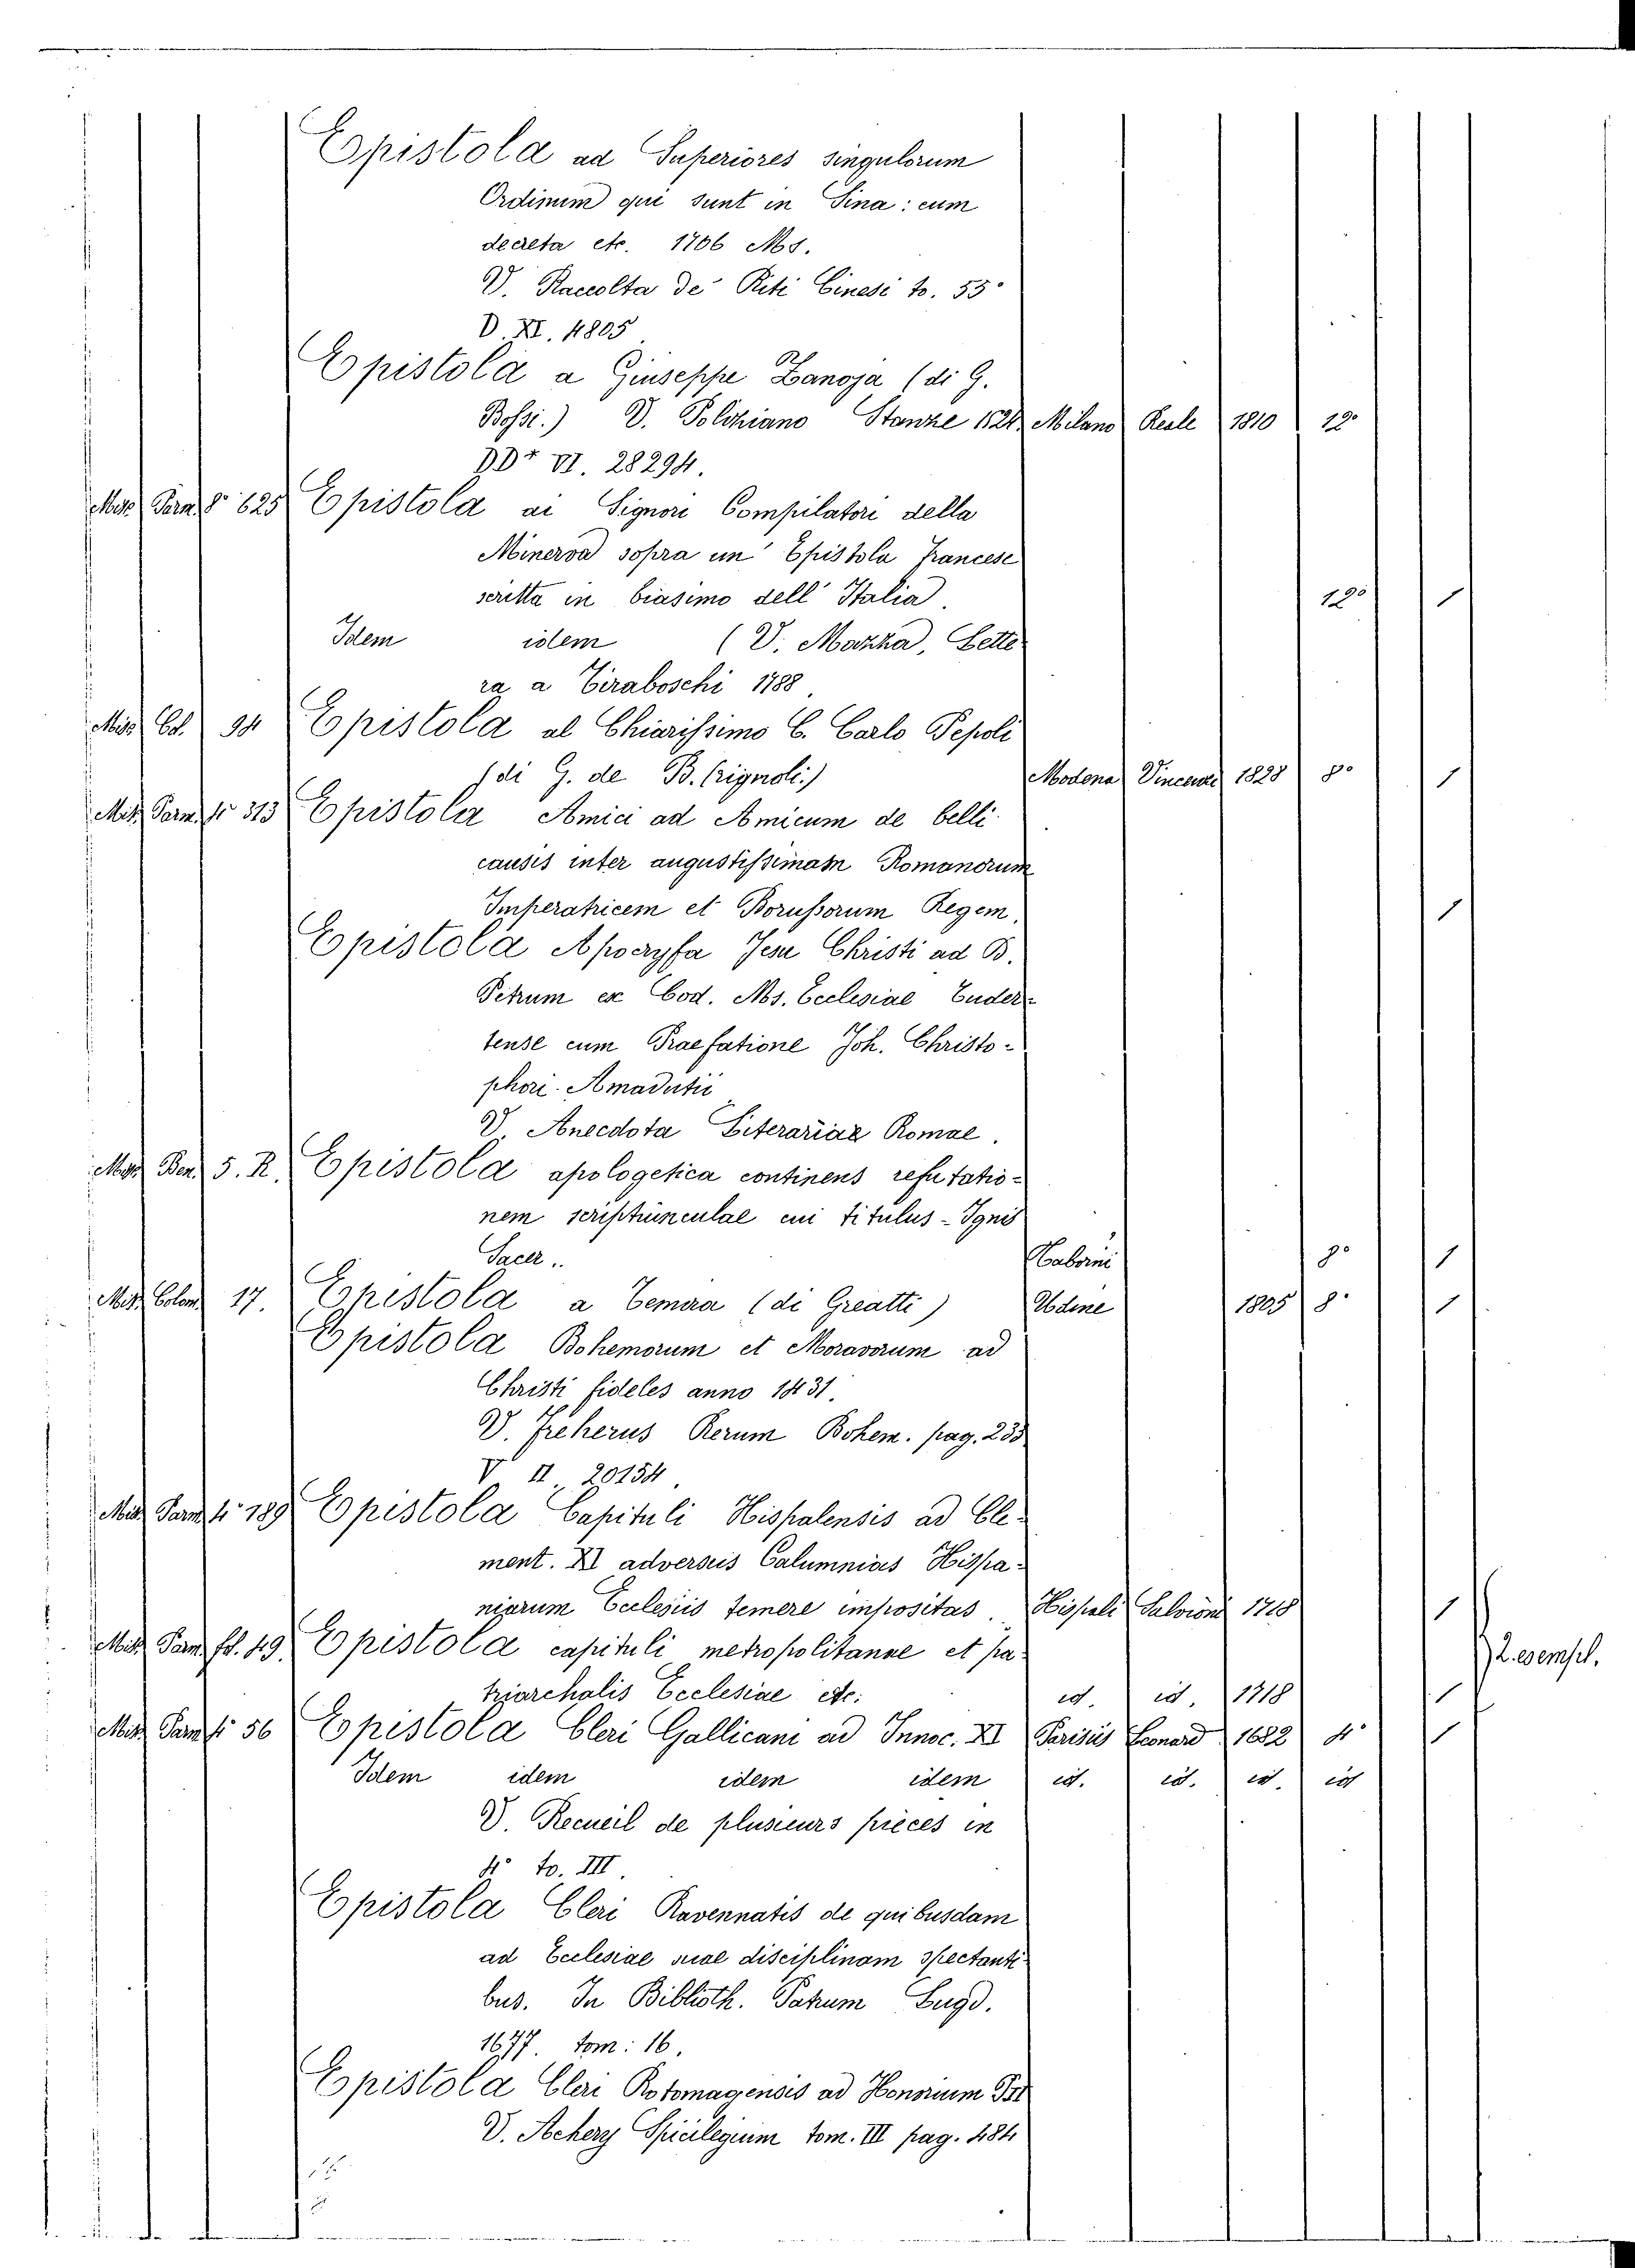 Epistola ad Superiores singulorum
Ordinum qui sunt in Sina: cum
decreta etc. 1706 Ms.
V. Raccolta de' Riti Cinesi to. 55°
D. XI. 4805
Epistola a Giuseppe Zanoja (di G.
Bossi.) V. Poliziano Stanze Milano Reale 1810 12°
DD+ VI. 28294.
Misc Parm 8° 625 Epistola ai Signori Compilatori della
Minerva sopra un' Epistola Francese
scritta in biasimo dell' Italia. 12° 1
Idem idem (V. Mazza, Lette
ra a Tiraboschi 1788
Misc Col. 94 Epistola al Chiarissimo C. Carlo Pepoli
(di G. de B. Brignoli.) Modena Vincenzi 1828 8° 1
Misc Parm. 4° 313 Epistola Amici ad Amicum de belli
causis inter augustissimam Romanorum
Imperatricem et Borussorum Regem. 1
Epistola Apocryfa Jesu Christi ad B.
Petrum ex Cod. Ms. Ecclesiae Euder-
tense cum Praefatione Joh. Christo-
phori Amadutii
V. Anecdota Literariae Romae.
Misc Ben. 5. R. Epistola apologetica continens refutatio-
nem scriptiunculae cui titulus - Ignis
Sacer.. 8° 1
Misc Colom 17. Epistola a Temira (di Greatti) Udine 1805 8° 1
Epistola Bohemorum et Moravorum ad
Christi fideles anno 1431.
V. Freherus Rerum Bohem. pag. 235
V II. 20154.
Misc Parm 4° 189 Epistola Capituli Hispalensis ad Cle-
ment. XI adversus Calumnias Hispa-
niarum Ecclesiis temere impositas. Hispali Salvioni 1718 1
Misc Parm fol. 49. Epistola capituli metropolitanae et pa-
triarchalis Ecclesiae etc: id. id. 1718 1
2. esempl.
Misc Parm 4° 56 Epistola Cleri Gallicani ad Innoc. XI Parisiis Leonard 1682 4° 1
Idem idem idem idem id. id. id. id
V. Recueil de plusieurs pièces in
4° to. III.
Epistola Cleri Ravennatis de quibusdam
ad Ecclesiae suae disciplinam spectanti-
bus. In Biblioth. Patrum Lugd.
1677. tom: 16.
Epistola Cleri Rotomagensis ad Honorium
V. Achery Spicilegium tom. III pag. 484